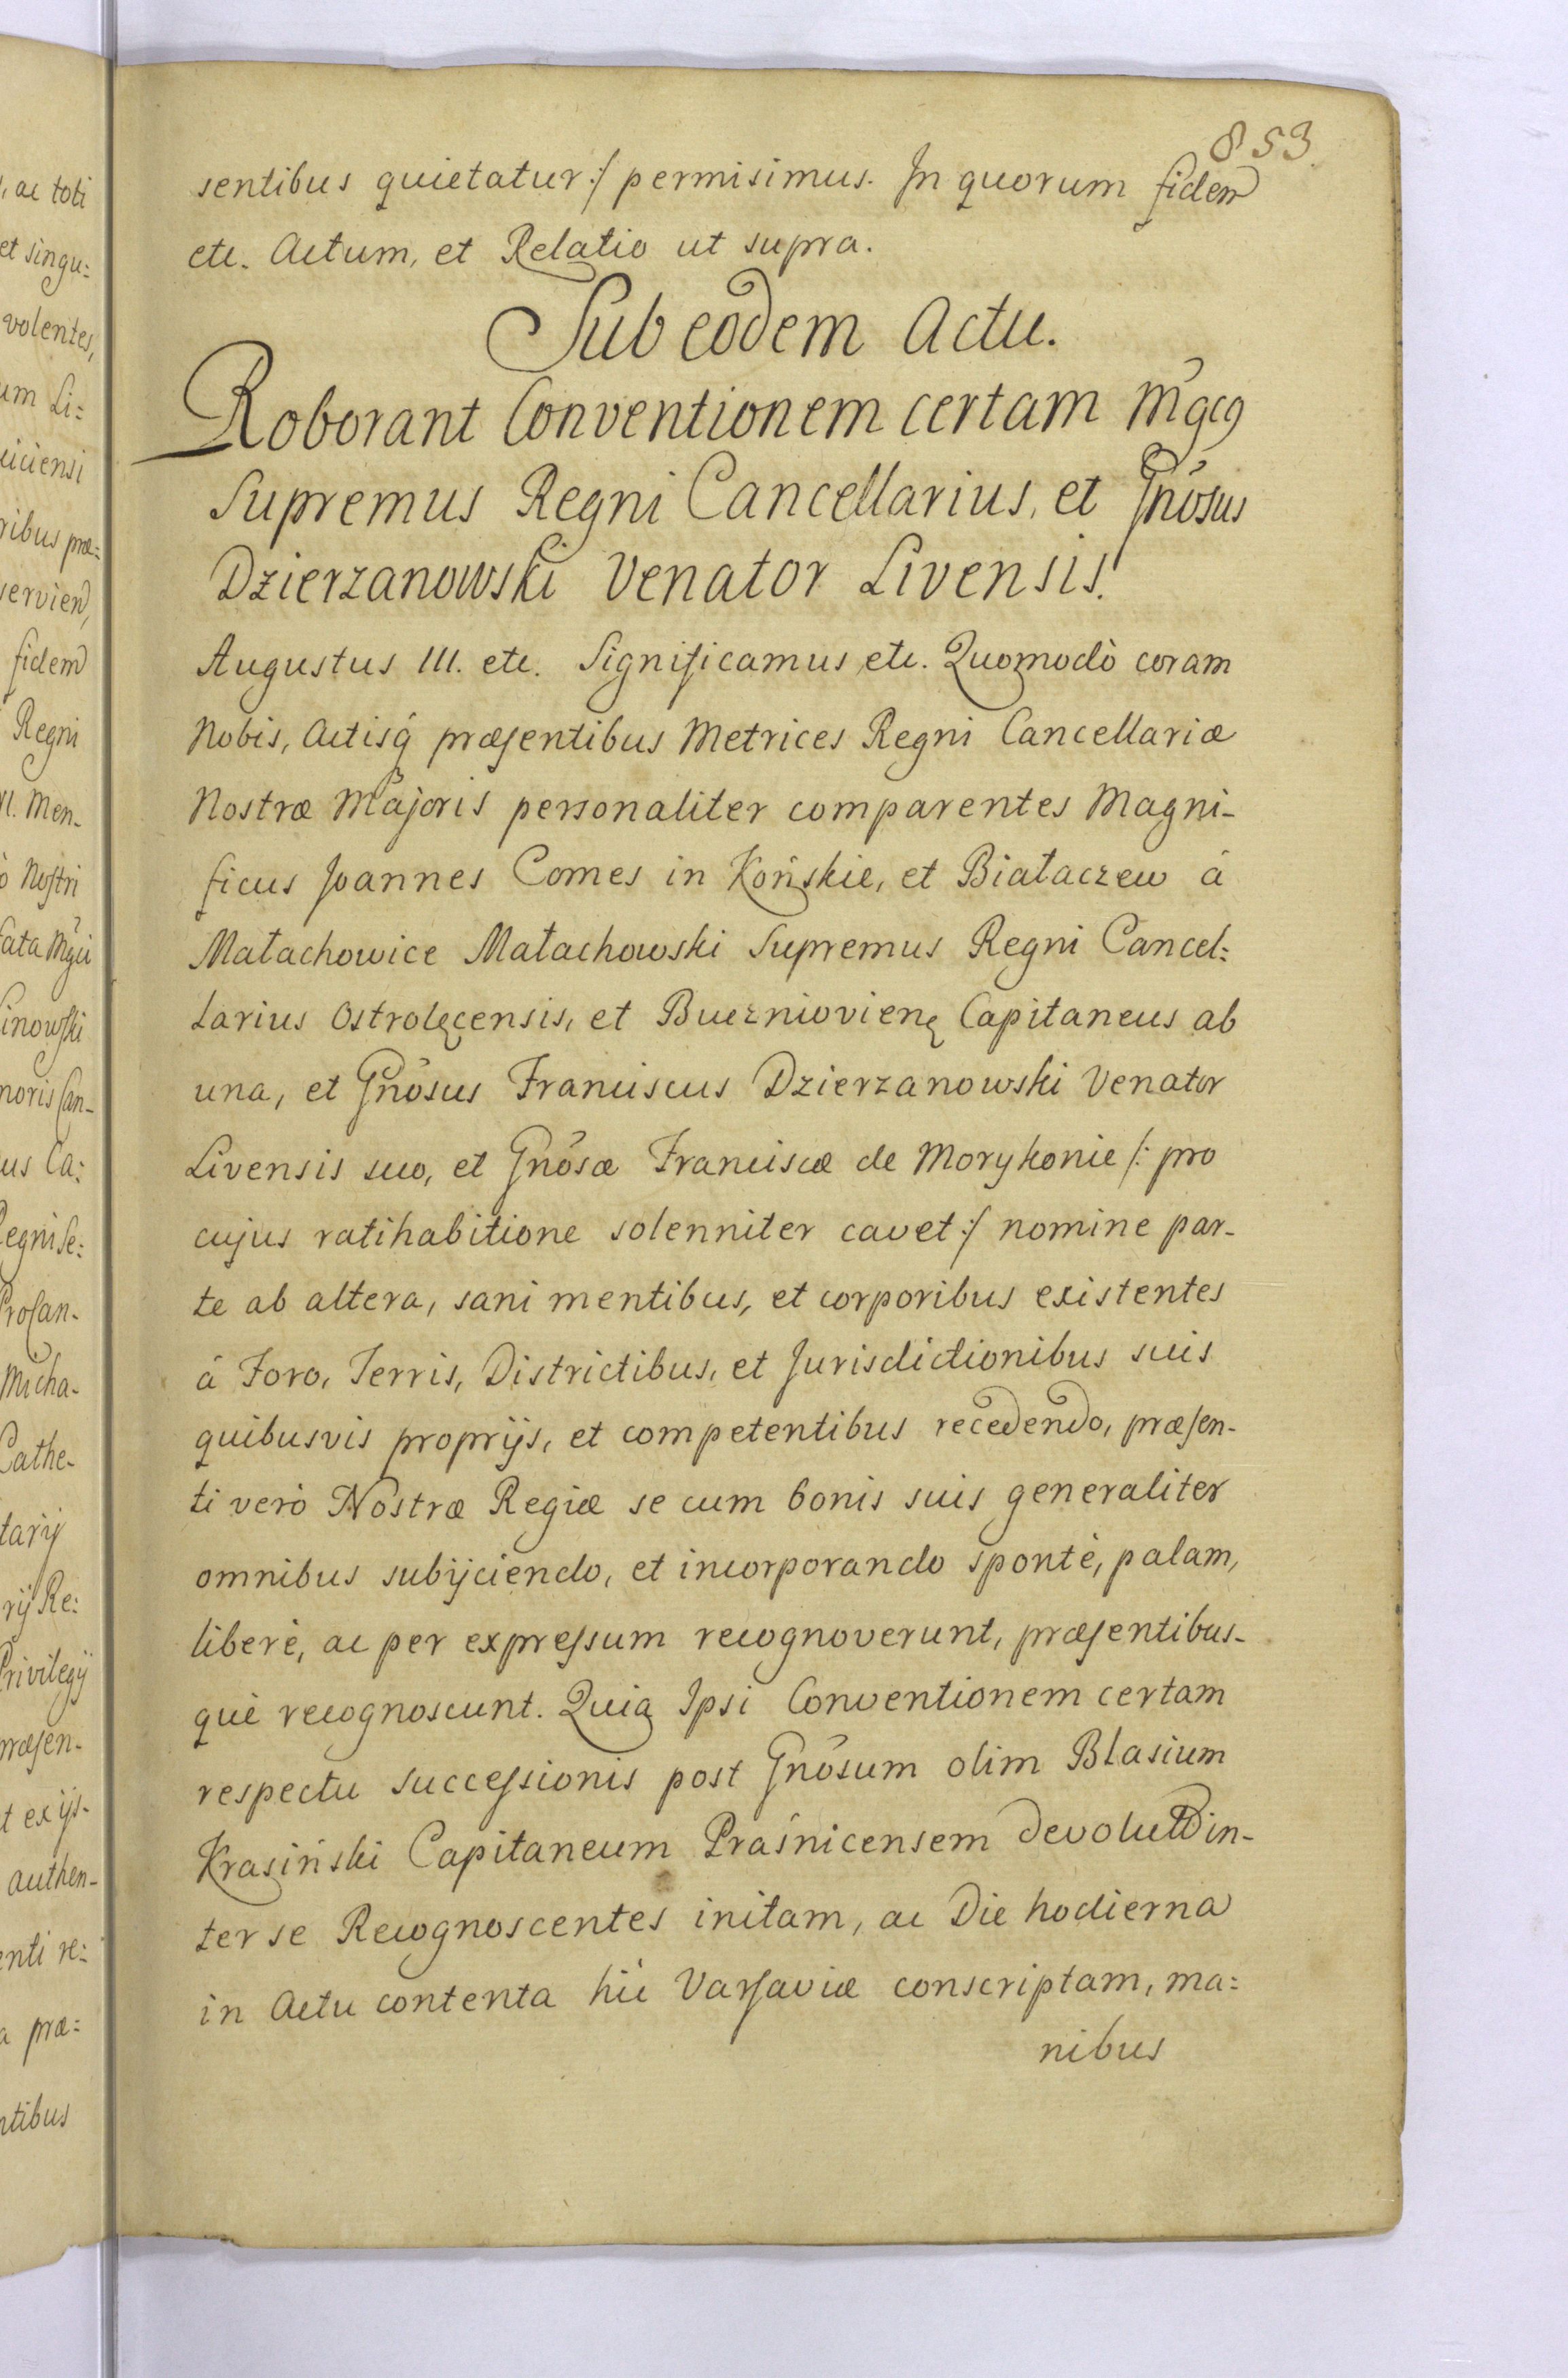 853.
sentibus quietatur :/ permisimus. In quorum fidem
etc. Actum, et Relatio ut supra.
Sub eodem Actu.
Roborant Conventionem certam Mgcg
Supremus Regni Cancellarius, et Gnosus
Dzierzanowski Venator Livensis.
Augustus III. etc. Significamus etc. Quomodò coram
Nobis, Actisq́ præsentibus Metrices Regni Cancellariæ
Nostræ Majoris personaliter comparentes Magni-
ficus Joannes Comes in Końskie, et Białaczew à
Małachowice Małachowski Supremus Regni Cancel:
larius Ostrolęcensis, et Bucznioviens Capitaneus ab
una, et Gnosus Franciscus Dzierzanowski Venator
Livensis suo, et Gnosæ Franciscæ de Morykonie /: pro
cujus ratihabitione solenniter cavet :/ nomine par-
te ab altera, sani mentibus, et corporibus existentes
à Foro, Terris, Districtibus, et Jurisdictionibus suis
quibusvis proprijs, et competentibus recedendo, præsen-
ti verò Nostræ Regiæ se cum bonis suis generaliter
omnibus subijciendo, et incorporando spontè, palam,
liberè, ac per expressum recognoverunt, præsentibus-
què recognoscunt. Quia Ipsi Conventionem certam
respectu successionis post Gnosum olim Blasium
Krasiński Capitaneum Praśnicensem devolutæ in-
ter se Recognoscentes initam, ac Die hodierna
in Actu contenta hìc Varsaviæ conscriptam, ma:
nibus
, ac toti
et singu:
volentes,
um Li:
ciensi
ribus præ:
serviend,
fidem
Regni
Men-
ò Nostri
fata Mgci
inowski
noris Can-
us Ca:
Regni Se:
ProCan-
Micha-
Cathe-
tarij
rij Re:
Privilegij
præsen-
t exijs-
authen-
enti re:
a præ:
ntibus